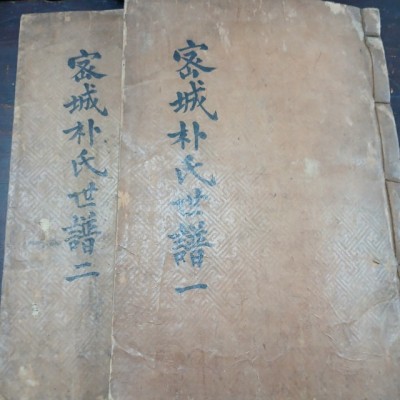 密城朴氏世譜一
密城朴氏世譜二